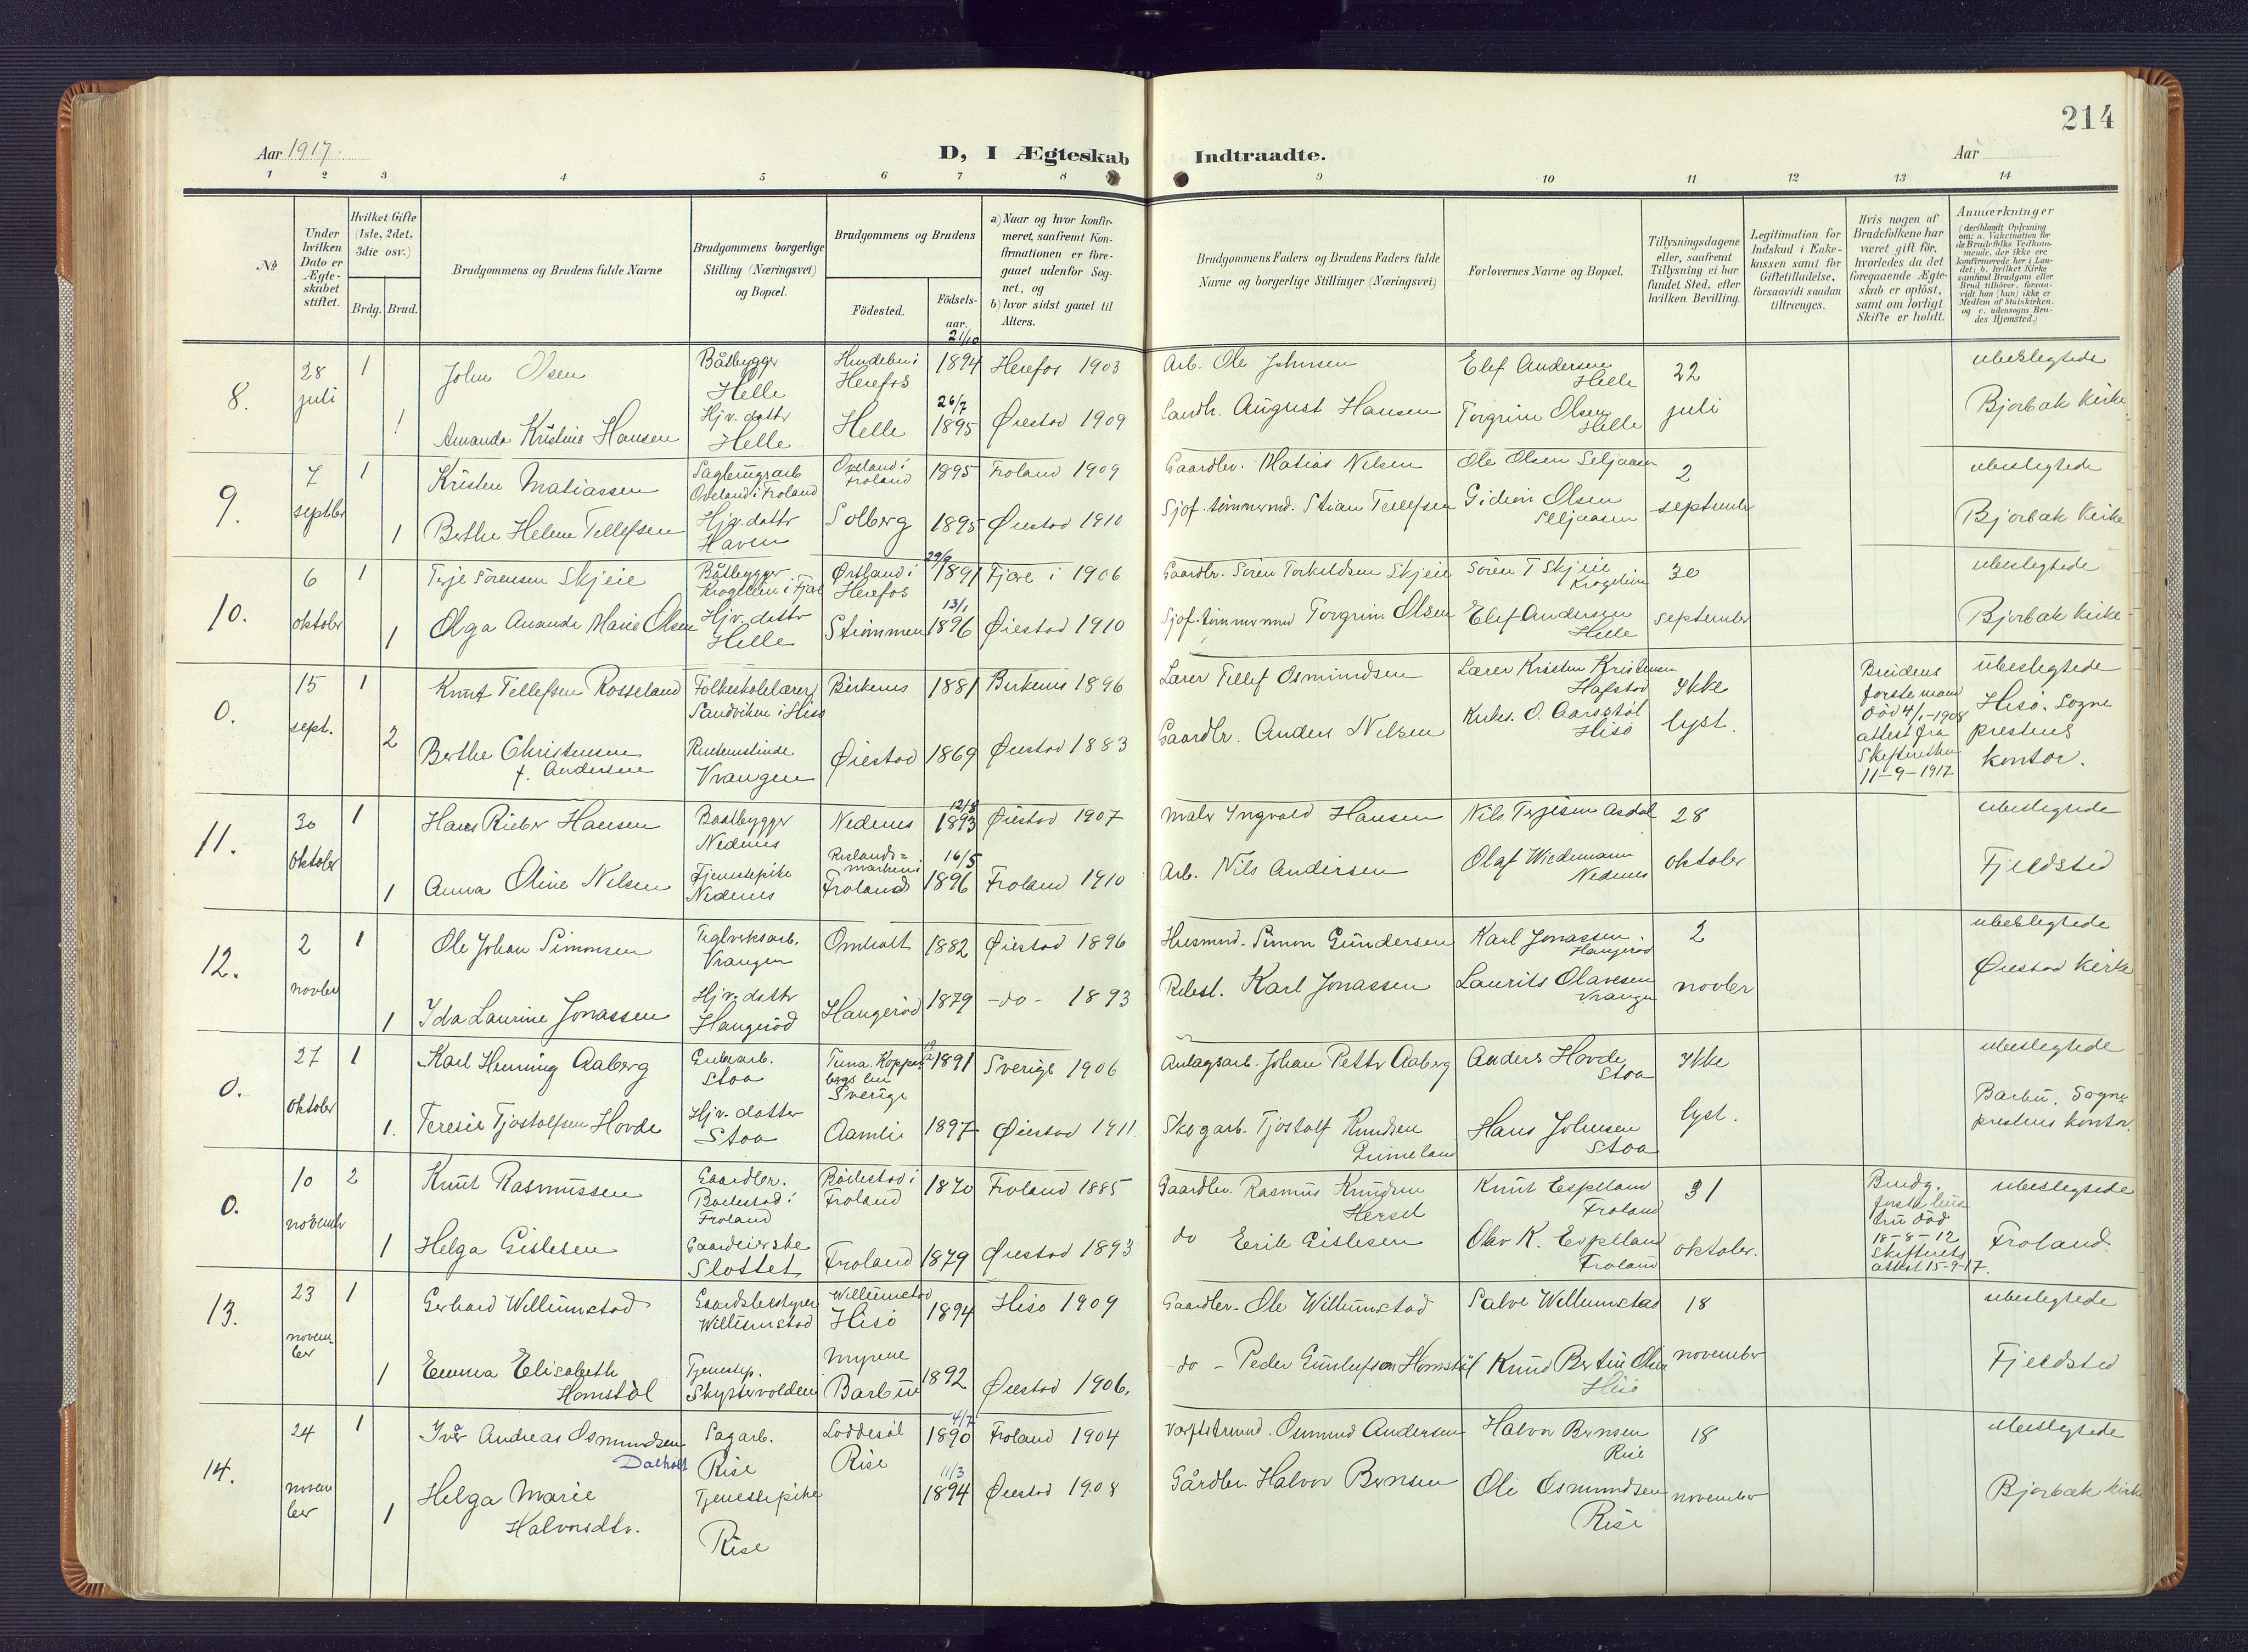 214
Aar 1917.
D, I Ægteskab Indtraadte.
Aar
1 2 3 4 5 6 7 8 9 10 11 12 13 14
No
Under
hvilken
Dato er
Ægte-
skabet
stiftet.
Hvilket Gifte
(1ste, 2det,
3die osv.)
Brdg. Brud.
Brudgommens og Brudens fulde Navne
Brudgommens borgerlige
Stilling (Næringsvei)
og Bopæl.
Brudgommens og Brudens
Fødested.
Fødsels-
aar.
a) Naar og hvor konfir-
meret, saafremt Kon-
firmationen er fore-
gaaet udenfor Sog-
net, og
b) hvor sidst gaaet til
Alters.
Brudgommens Faders og Brudens Faders fulde
Navne og borgerlige Stillinger (Næringsvei)
Forlovernes Navne og Bopæl.
Tillysningsdagene
eller, saafremt
Tillysning ei har
fundet Sted, efter
hvilken Bevilling.
Legitimation for
Indskud i Enke-
kassen samt for
Giftetilladelse,
forsaavidt saadan
tiltrænges.
Hvis nogen af
Brudefolkene har
været gift før,
hvorledes da det
foregaaende Ægte-
skab er opløst,
samt om lovligt
Skifte er holdt.
Anmærkninger
(deriblandt Oplysning
om: a. Vakcination for
de Brudefolks Vedkom-
mende, der ikke ere
konfirmerede her i Lan-
det; b. hvilket Kirke
samfund Brudgom eller
Brud tilhører, forsaa-
vidt han (hun) ikke er
Medlem af Statskirken.
og c. udensogns Bru-
des Hjemsted.)
8.
28 juli
1
John Olsen
Båtbygger
Helle
Herefos
21/10 1894
Herefos 1903
Arb. Ole Johnsen
Elef Andersen
Helle
22 juli
ubeslegtede
Bjorbak Kirke
1
Amanda Kristine Hansen
Hjv. dattr
Helle
Helle
26/7 1895
Øiestad 1909
August Hansen
Torgrim Olsen
Helle
9.
7 septbr
1
Kristen Matiassen
Sagbrugsarb
Oveland i Froland
Oveland i
Froland
1895
Froland 1909
Gaardbr. Matias Nilsen
Ole Olsen Seljaasen
2 septembr
ubeslegtede
Bjorbak Kirke
1
Berthe Helene Tellefsen
Hjv. dattr
Haven
Solberg
1895
Øiestad 1910
Sjøf. tømmermd. Stian Tellefsen
Gideon Olsen
Seljaasen
10.
6 oktober
1
Terje Sørensen Skjeie
Båtbygger
Krogelien i Fjære
Herefos
29/9 1891
Fjære i 1906
Gaardbr. Søren Torkildsen Skjeie
Søren T Skjeie
Krogelien
30 september
ubeslegtede
Bjorbak Kirke
1
Olga Amanda Marie Olsen
Hjv. dattr
Helle
Strømmen
13/1 1896
Øiestad 1910
Sjøf. tømmermd Torgrim Olsen
Elef Andersen
Helle
0.
15 sept.
1
Knut Tellefsen Rosseland
Folkeskolelærer
Sandviken i Hisø
Birkenes
1881
Birkenes 1896
Lærer Tellef Osmundsen
Lærer Kristen Kristensen
Hafstad
Ikke lyst.
Brudens
første mand
død 4/1-1908
attest fra
Skifteretten
11-9-1917
ubeslegtede
Hisø. Sogne
prestens
kontor.
2
Berthe Christensen
f. Andersen
Vrangen
Øiestad
1869
Øiestad 1883
Gaardbr. Anders Nilsen
Kirkes. O. Aarsstøl
Hisø
11.
30 oktober
1
Hans Rieber Hansen
Baatbygger
Nedenes
Nedenes
12/8 1893
Øiestad 1907
Maler Ingvald Hansen
Nils Terjesen Asdal
28 oktober
ubeslegtede
Fjeldsted
1
Anna Oline Nilsen
Tjenestepike
Nedenes
Rislands=
marken i
Froland
16/5 1896
Froland 1910
Arb. Nils Andersen
Olaf Wiedemann
Nedenes
12.
2 novbr
1
Ole Johan Simonsen
Teglverksarb.
Vrangen
Omholt
1882
Øiestad 1896
Husmnd. Simon Gundersen
Karl Jonassen
Haugerød
2 novbr
ubeslegtede
Øiestad Kirke
1
Ida Laurine Jonassen
Hjv. dattr
Haugerød
Haugerød
1879
-do- 1893
Karl Jonassen
Laurits Olavesen
Vrangen
0.
27 oktober
1
Karl Henning Aaberg
Grubearb.
Stoa
Tuna. Kopper
bergs len
Sverige
1891
Sverige 1906
Anlægsarb. Johan Petter Aaberg
Anders Hovde
Stoa
Ikke lyst.
ubeslegtede
Barbu. Sogne
prestens kontor.
1.
Teresie Tjostolfsen Hovde
Hjv. datter
Stoa
Aamli
1897
Øiestad 1911.
Skogarb. Tjostolf Knudsen
Grimeland
Hans Johnsen
Stoa
0.
10 novembr
2
Knut Rasmussen
Gaardbr.
Bøilestad i
Froland
Bøilestad i
Froland
1870
Froland 1885
Gaardbr. Rasmus Knudsen
Hersel
Knut Espeland
Froland
31 oktober.
Brudg.
første hus
tru død
18-8-12
Skifterets
attest 15-9-17.
ubeslegtede
Froland
1
Helga Gislesen
Gaardeierske
Slottet
Froland
1879
Øiestad 1893
do Erik Gislesen
Olav K. Espeland
Froland
13.
23 novem-
ber
1
Gerhard Willumstad
Gaardsbestyrer
Willumstad
Willumstad
Hisø
1894
Hisø 1909
Gaardbr. Ole Willumstad
Salve Willumstad
18 november
ubeslegtede
Fjeldsted
1
Emma Elisabeth
Homstøl
Tjenestep.
Skyttevolden
Myrene
Barbu
1892
Øiestad 1906.
- do - Peder Gunlufsen Homstøl
Knud Bertin Olsen
Hisø
14.
24 novem
ber
1
Iver Andreas Osmundsen
Dalholt
Sagarb.
Rise
Løddesøl
Rise
4/7 1890
Froland 1904
Osmund Andersen
Halvor Bernsen
Rise
18 november
ubeslegtede
Bjorbak Kirke
1
Helga Marie
Halvorsdtr.
Tjenestepike
Rise
11/3 1894
Øiestad 1908
Gårdbr. Halvor Bernsen
Ole Osmundsen
Rise